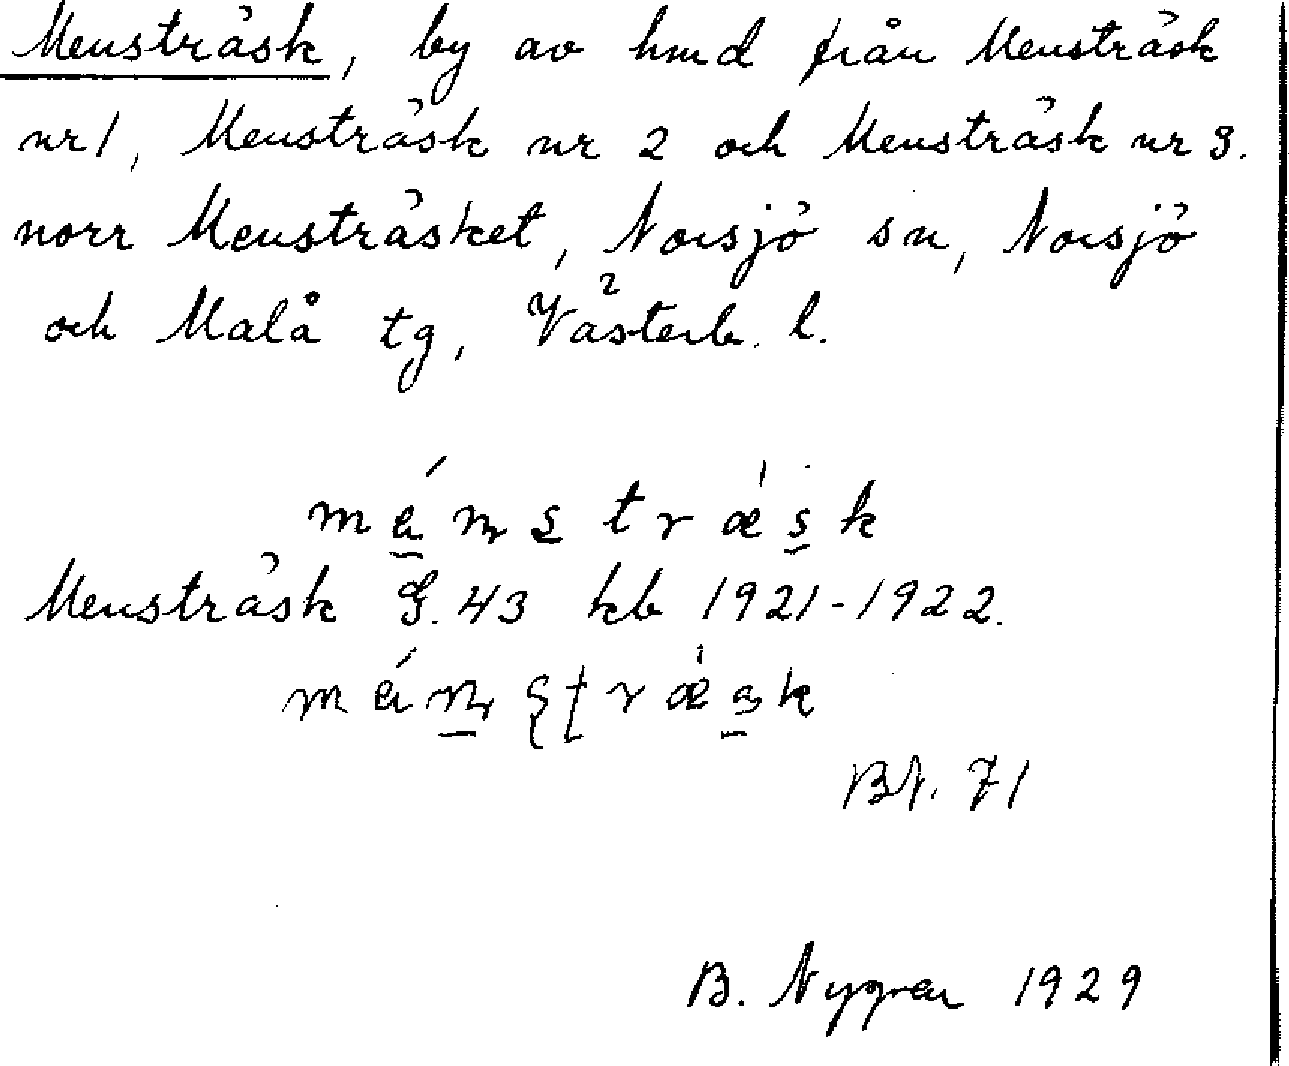 Mensträsk, by av hmd från Mensträsk
nr 1, Mensträsk nr 2 och Mensträsk nr 3.
norr Mensträsket, Norsjö sn, Norsjö
och Malå tg, Västerb. l.
Mensträsk G. 43 kb 1921-1922.
BN. 71
B. Nygren 1929